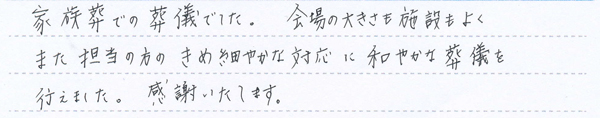 家族葬での葬儀でした。 会場の大きさも施設もよく
また担当の方のきめ細やかな対応に和やかな葬儀を
行えました。感謝いたします。